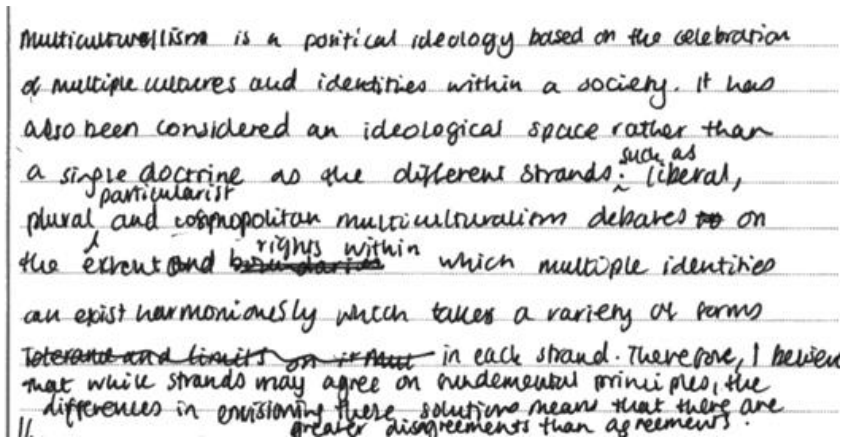 Multiculturallism is a political ideology based on the celebration
of multiple cultures and identities within a society. It has
also been considered an ideological space rather than
a single doctrine as the different strands such as liberal,
plural, particularist and cosmopolitan multiculturalism debates on
the extent and rights within which multiple identities
can exist harmoniously which takes a variety of forms
in each strand. Therefore, I believe
that while strands may agree on fundemental principles, the
differences in envisioning these solutions means that there are
greater disagreements than agreements.